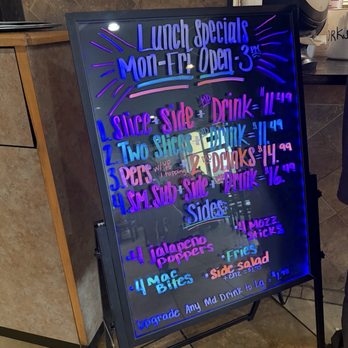 Lunch Specials
Mon-Fri Open-3pm
1. Slice + Side + Drink = $11.49
2. Two Slices + Drink = $11.49
3. Pers Drinks = $14.99
4. Sm. Sub + Side + Drink = $16.99
Sides
• 4 Jalapeno Poppers
• 4 Mozz Sticks
• 4 Mac Bites
• Fries
• Side salad
Upgrade Any Md Drink to Lg